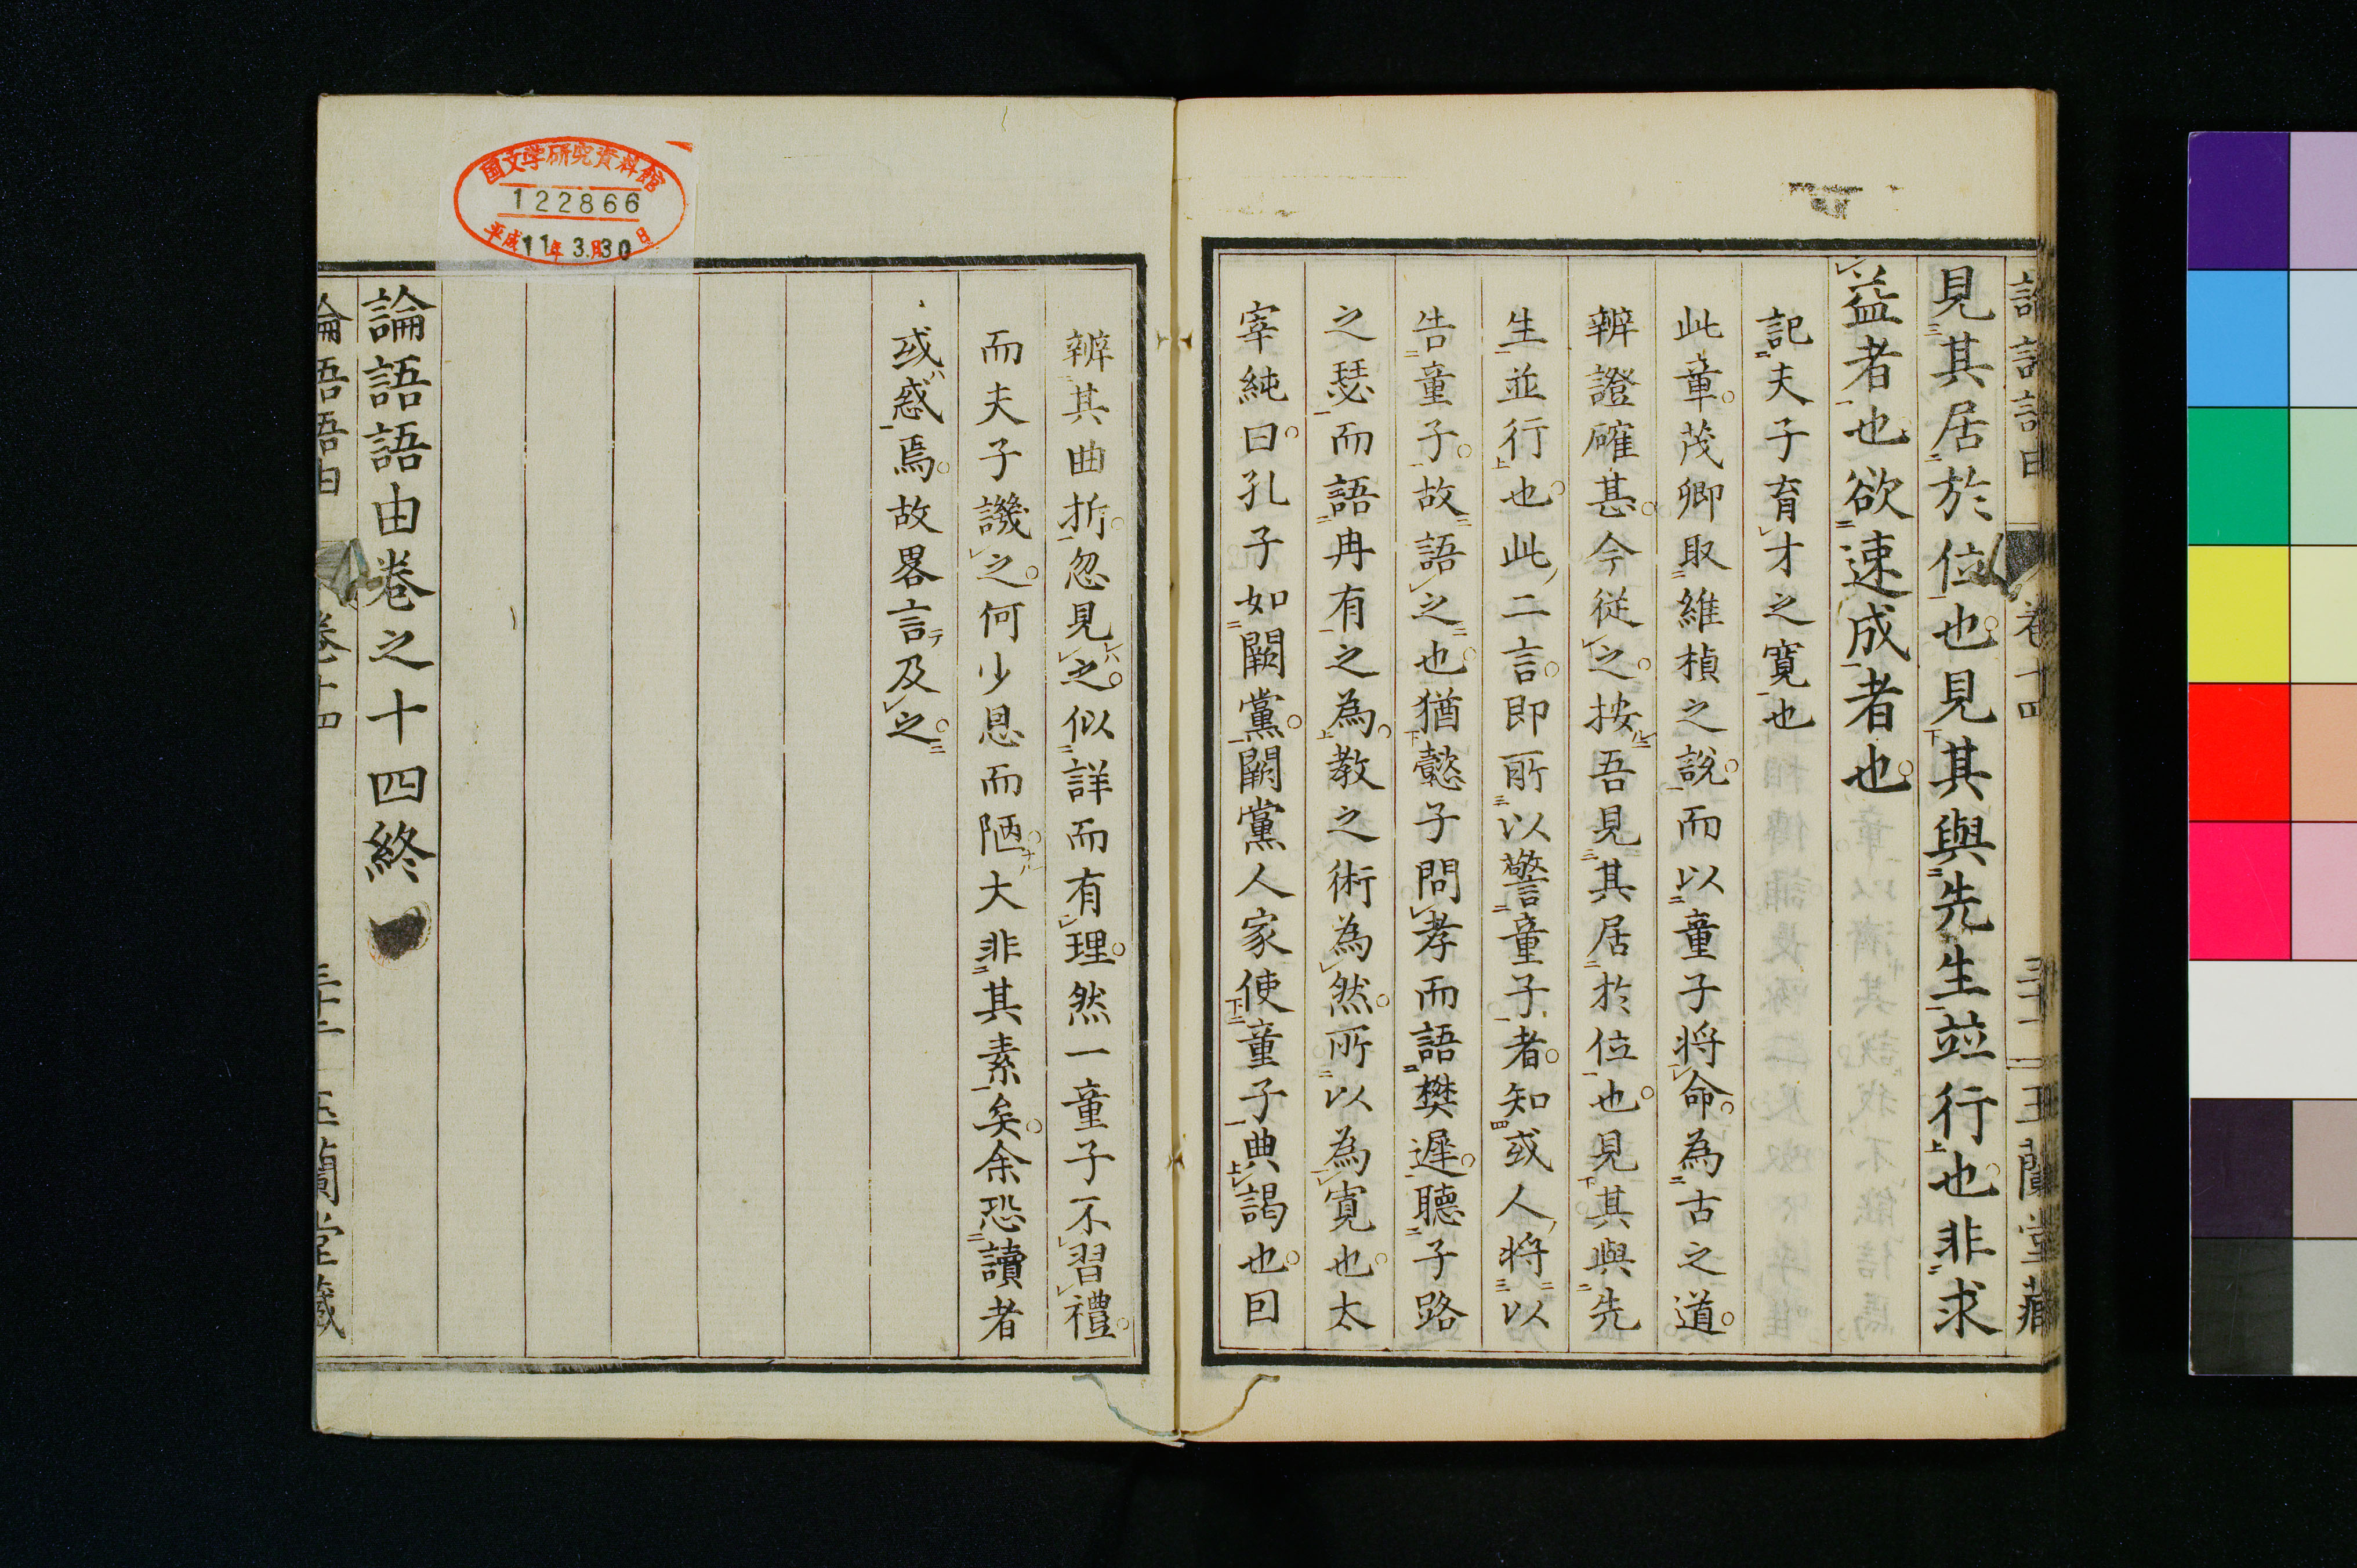 見其居於位也見其與先生並行也非求
益者也欲速成者也
記夫子育才之寛也
此章茂卿取維楨之說而以童子将命為古之道
辨證確甚今従之按吾見其居於位也見其與先
生並行也此二言即所以警童子者知或人将以
告童子故語之也猶懿子問孝而語樊遲聽子路
之瑟而語冉有之為教之術為然所以為寛也太
宰純曰孔子如闕黨闕黨人家使童子典謁也曰
辨其曲折忽見之似詳而有理然一童子不習禮
而夫子譏之何少恩而陋大非其素矣余恐讀者
或惑焉故畧言及之
論語語由巻之十四終
論語語由 巻十四 三十二 玉蘭堂藏
国文学研究資料館
122866
平成11年3月30日